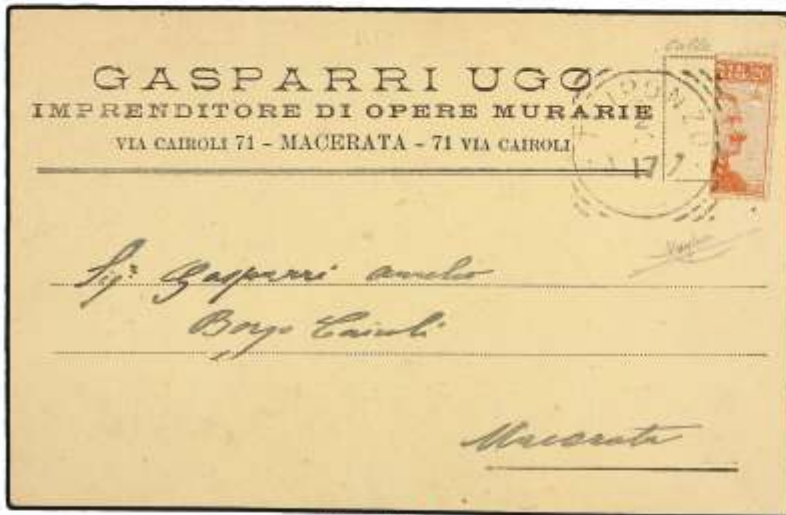 GASPARRI UGO
IMPRENDITORE DI OPERE MURARIE
VIA CAIROLI 71 - MACERATA - 71 VIA CAIROLI
TRIPONZO
17 7
Sigr. Gasparri Aurelio
Borgo Cairoli
Macerata